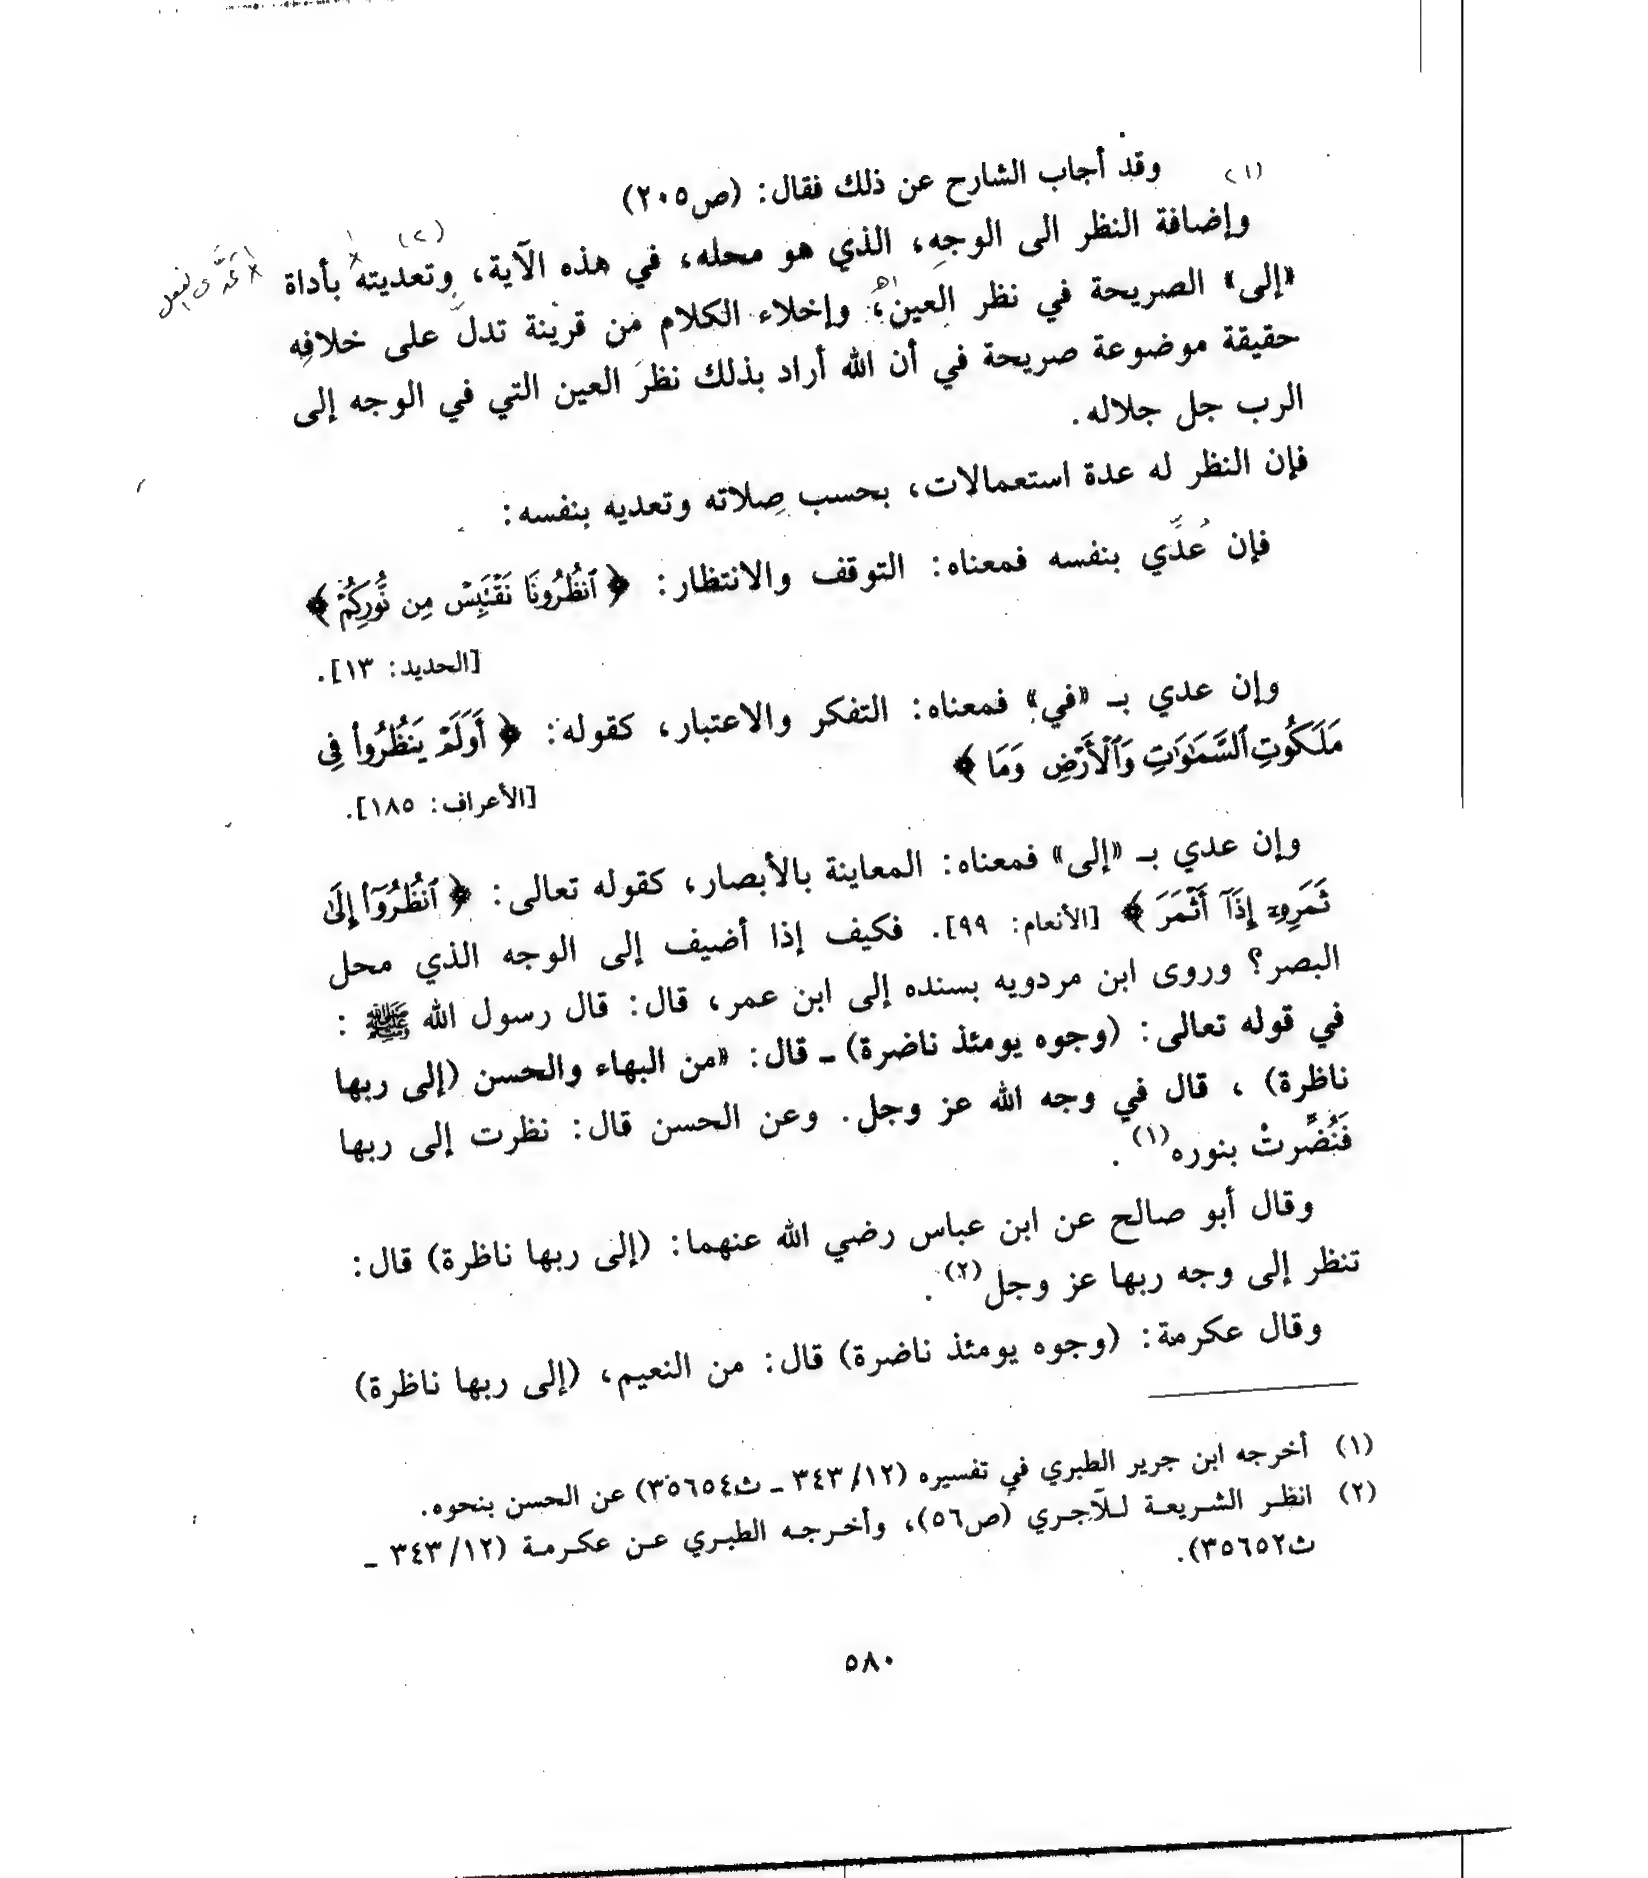 وقد أجاب الشارح عن ذلك فقال: (ص٢٠٥)
(١)
وإضافة النظر الى الوجهِ، الذي هو محله، في هذه الآية، وتعديته بأداة
(٢)
«إلى» الصريحة في نظر العين، وإخلاء الكلام من قرينة تدل على خلافِه
حقيقة موضوعة صريحة في أن الله أراد بذلك نظرَ العين التي في الوجه إلى
الرب جل جلاله.
فإن النظر له عدة استعمالات، بحسب صِلاته وتعديه بنفسه:
فإن عُدِّي بنفسه فمعناه: التوقف والانتظار: ﴿ ٱنظُرُونَا نَقْتَبِسْ مِن نُّورِكُمْ ﴾
[الحديد: ١٣].
وإن عدي بـ «في» فمعناه: التفكر والاعتبار، كقوله: ﴿ أَوَلَمْ يَنظُرُوا۟ فِى
مَلَكُوتِ ٱلسَّمَٰوَٰتِ وَٱلْأَرْضِ وَمَا ﴾
[الأعراف: ١٨٥].
وإن عدي بـ «إلى» فمعناه: المعاينة بالأبصار، كقوله تعالى: ﴿ ٱنظُرُوٓا۟ إِلَىٰ
ثَمَرِهِۦٓ إِذَآ أَثْمَرَ ﴾ [الأنعام: ٩٩]. فكيف إذا أضيف إلى الوجه الذي محل
البصر؟ وروى ابن مردويه بسنده إلى ابن عمر، قال: قال رسول الله ﷺ :
في قوله تعالى: (وجوه يومئذ ناضرة) ـ قال: «من البهاء والحسن (إلى ربها
ناظرة) ، قال في وجه الله عز وجل. وعن الحسن قال: نظرت إلى ربها
فَنُضِّرتْ بنوره(١) .
وقال أبو صالح عن ابن عباس رضي الله عنهما: (إلى ربها ناظرة) قال:
تنظر إلى وجه ربها عز وجل(٢) .
وقال عكرمة: (وجوه يومئذ ناضرة) قال: من النعيم، (إلى ربها ناظرة)
(١) أخرجه ابن جرير الطبري في تفسيره (١٢/ ٣٤٣ ـ ث٣٥٦٥٤) عن الحسن بنحوه.
(٢) انظر الشريعة للآجري (ص٥٦)، وأخرجه الطبري عن عكرمة (١٢/ ٣٤٣ ـ
ث٣٥٦٥٢).
٥٨٠